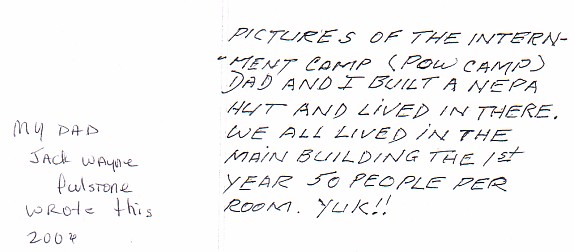 PICTURES OF THE INTERN-
MENT CAMP (POW CAMP)
DAD AND I BUILT A NEPA
HUT AND LIVED IN THERE.
WE ALL LIVED IN THE
MAIN BUILDING THE 1st
YEAR 50 PEOPLE PER
ROOM. YUK!!
MY DAD
JACK WAYNE
WROTE this
2004